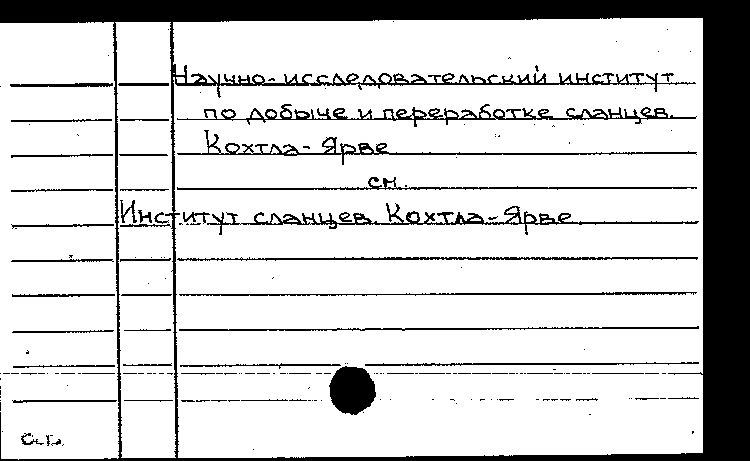 Научно-исследовательский институт
по добыче и переработке сланцев.
Кохтла-Ярве
см.
Институт сланцев. Кохтла-Ярве